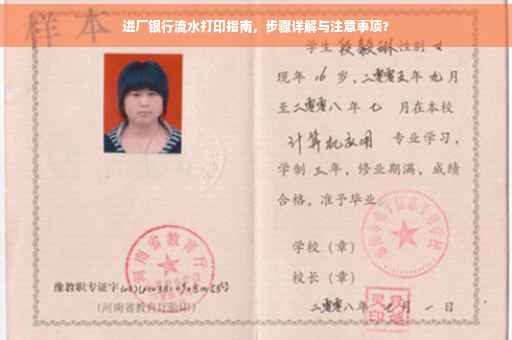 进厂银行流水打印指南，步骤详解与注意事项?
样本
学生段毅琳性别女
现年16岁，二零零五年九月
至二零零八年七月在本校
计算机应用 专业学习，
学制三年，修业期满，成绩
合格，准予毕业
学校（章）
校长（章）
二零零八年七月一日
河南省教育厅
豫教职专证字
(河南省教育厅验印)